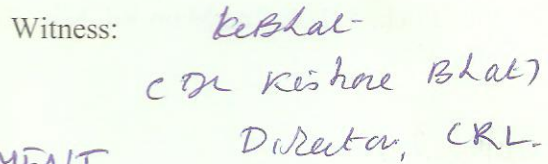 Witness: KBhat
(Dr Kishore Bhat)
Director, CRL.
MENT